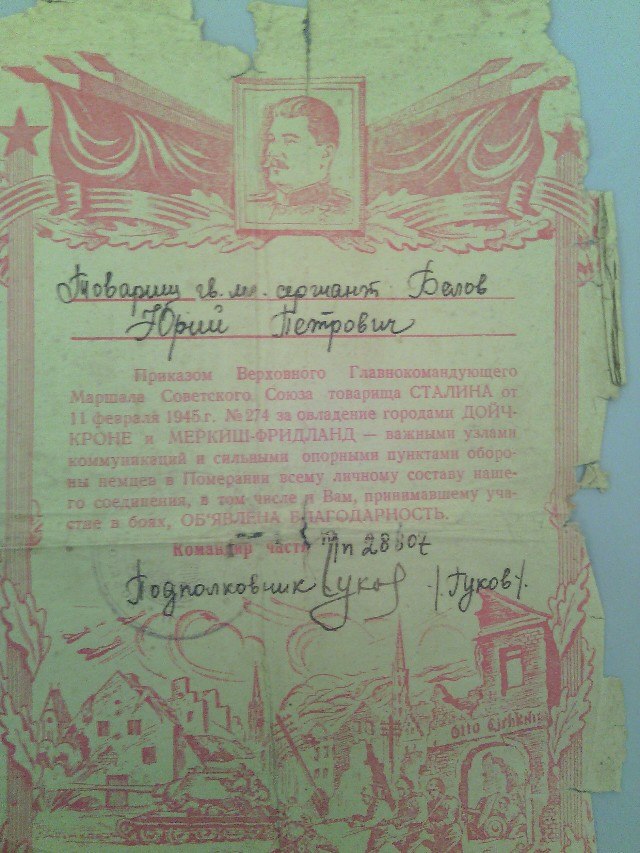 Товарищ гв. мл. сержант Белов
Юрий Петрович
Приказом Верховного Главнокомандующего
Маршала Советского Союза товарища СТАЛИНА от
11 февраля 1945 г. № 274 за овладение городами ДОЙЧ-
КРОНЕ и МЕРКИШ-ФРИДЛАНД — важными узлами
коммуникаций и сильными опорными пунктами оборо-
ны немцев в Померании всему личному составу наше-
го соединения, в том числе и Вам, принимавшему уча-
стие в боях, ОБ'ЯВЛЕНА БЛАГОДАРНОСТЬ.
Командир части пп 28807
Подполковник /Гуков/.
Otto